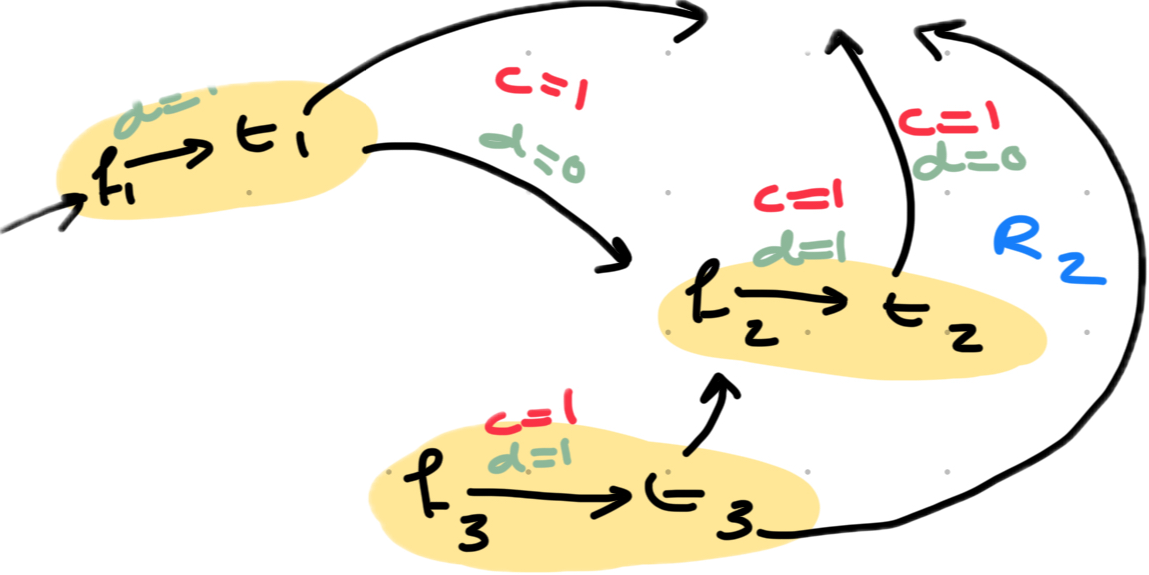 d=1
f1 → t1
c=1
d=0
c=1
d=0
c=1
d=1
R2
f2 → t2
c=1
d=1
f3 → t3